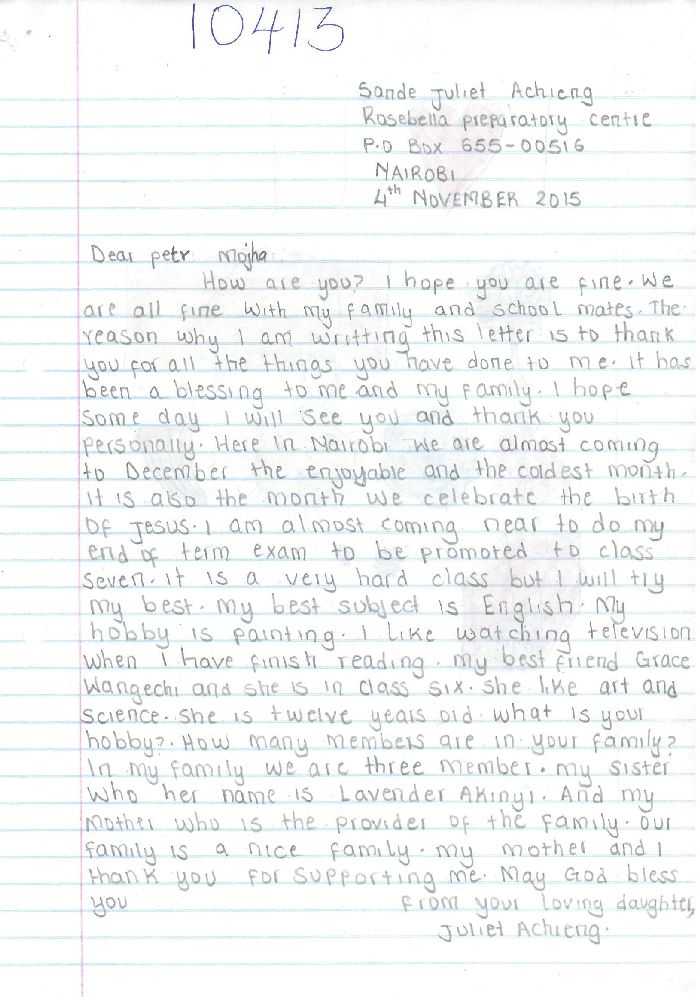 10413
Sande Juliet Achieng
Rosebella preparatory centre
P.O Box 655-00516
NAIROBI
4th NOVEMBER 2015
Dear petr Mojha
How are you? I hope you are fine. We
are all fine with my family and school mates. The
reason why I am writting this letter is to thank
you for all the things you have done to me. It has
been a blessing to me and my family. I hope
some day I will see you and thank you
personally. Here in Nairobi we are almost coming
to December the enjoyable and the coldest month.
It is also the month we celebrate the birth
of Jesus. I am almost coming near to do my
end of term exam to be promoted to class
seven. It is a very hard class but I will try
my best. My best subject is English. My
hobby is painting. I like watching television
when I have finish reading. my best friend Grace
Wangechi and she is in class six. she like art and
science. she is twelve years old. what is your
hobby?. How many members are in your family?
In my family we are three member. my sister
who her name is Lavender Akinyi. And my
Mother who is the provider of the family. our
family is a nice family. my mother and I
thank you for supporting me. May God bless
you from your loving daughter,
Juliet Achieng.